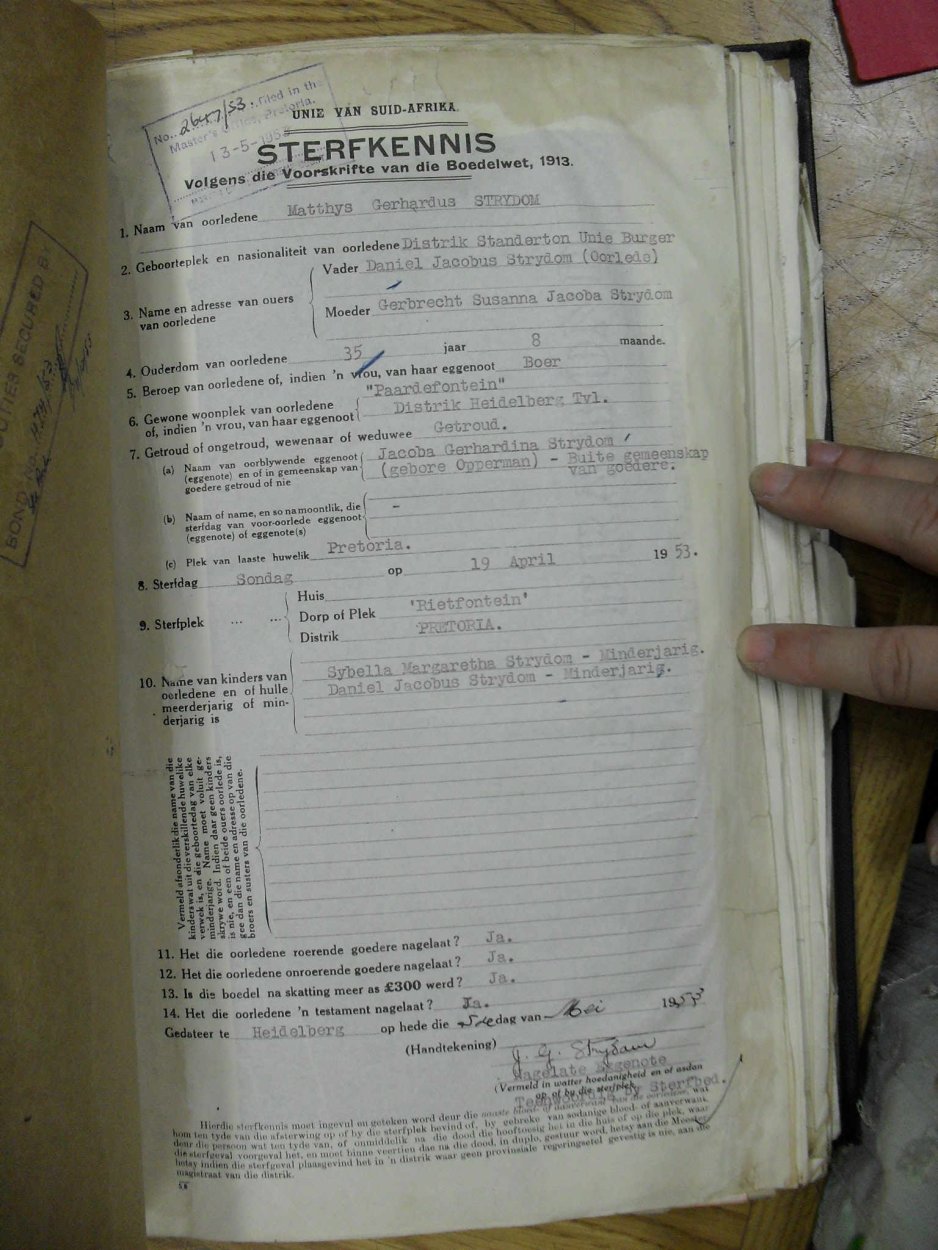 No. 2647/53. filed in the
Master's Office, Pretoria.
13-5-1953
UNIE VAN SUID-AFRIKA.
STERFKENNIS
Volgens die Voorskrifte van die Boedelwet, 1913.
1. Naam van oorledene Matthys Gerhardus STRYDOM
2. Geboorteplek en nasionaliteit van oorledene Distrik Standerton Unie Burger
3. Name en adresse van ouers van oorledene
Vader Daniel Jacobus Strydom (Oorlede)
Moeder Gerbrecht Susanna Jacoba Strydom
4. Ouderdom van oorledene 35 jaar 8 maande.
5. Beroep van oorledene of, indien 'n vrou, van haar eggenoot Boer
6. Gewone woonplek van oorledene "Paardefontein"
of, indien 'n vrou, van haar eggenoot Distrik Heidelberg Tvl.
7. Getroud of ongetroud, wewenaar of weduwee Getroud.
(a) Naam van oorblywende eggenoot Jacoba Gerhardina Strydom
(eggenote) en of in gemeenskap van (gebore Opperman) - Buite gemeenskap
goedere getroud of nie van goedere.
(b) Naam of name, en so na moontlik, die
sterfdag van voor-oorlede eggenoot -
(eggenote) of eggenote(s)
(c) Plek van laaste huwelik Pretoria.
8. Sterfdag Sondag op 19 April 1953.
9. Sterfplek ... ...
Huis
Dorp of Plek 'Rietfontein'
Distrik PRETORIA.
10. Name van kinders van Sybella Margaretha Strydom - Minderjarig.
oorledene en of hulle Daniel Jacobus Strydom - Minderjarig.
meerderjarig of min-
derjarig is
Vermeld afsonderlik die name van die
kinders wat uit die verskillende huwelike
verwek is, en die geboortedag van elke
minderjarige. Name moet voluit ge-
skrywe word. Indien daar geen kinders
is nie, en een of beide ouers oorlede is,
gee dan die name en adresse op van die
broers en susters van die oorledene.
11. Het die oorledene roerende goedere nagelaat? Ja.
12. Het die oorledene onroerende goedere nagelaat? Ja.
13. Is die boedel na skatting meer as £300 werd? Ja.
14. Het die oorledene 'n testament nagelaat? Ja.
Gedateer te Heidelberg op hede die 5de dag van Mei 1953
(Handtekening) J. G. Strydom
Nagelate Eggenote
(Vermeld in watter hoedanigheid en of asdan
op of by die sterfplek.
Teenwoordig by Sterfbed.
Hierdie sterfkennis moet ingevul en geteken word deur die naaste bloed- of aanverwant van die oorledene, wat
hom ten tyde van die afsterwing op of by die sterfplek bevind of, by gebreke van sodanige bloed- of aanverwant,
deur die persoon wat ten tyde van, of onmiddelik na die dood die hooftoesig het in die huis of op die plek, waar
die sterfgeval voorgeval het, en moet binne veertien dae na die dood, in duplo, gestuur word, hetsy aan die Meester,
hetsy indien die sterfgeval plaasgevind het in 'n distrik waar geen provinsiale regeringsetel gevestig is nie, aan die
magistraat van die distrik.
BOND
SECURED B